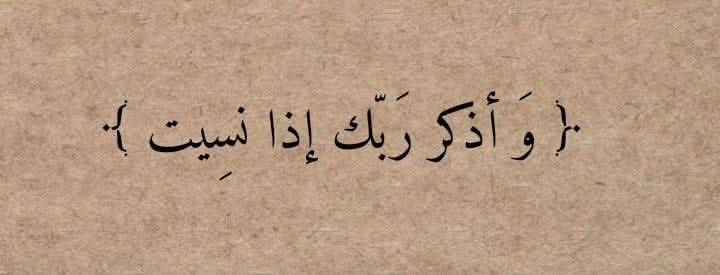 ﴿ وَ أذكر رَبّك إذا نسِيت ﴾